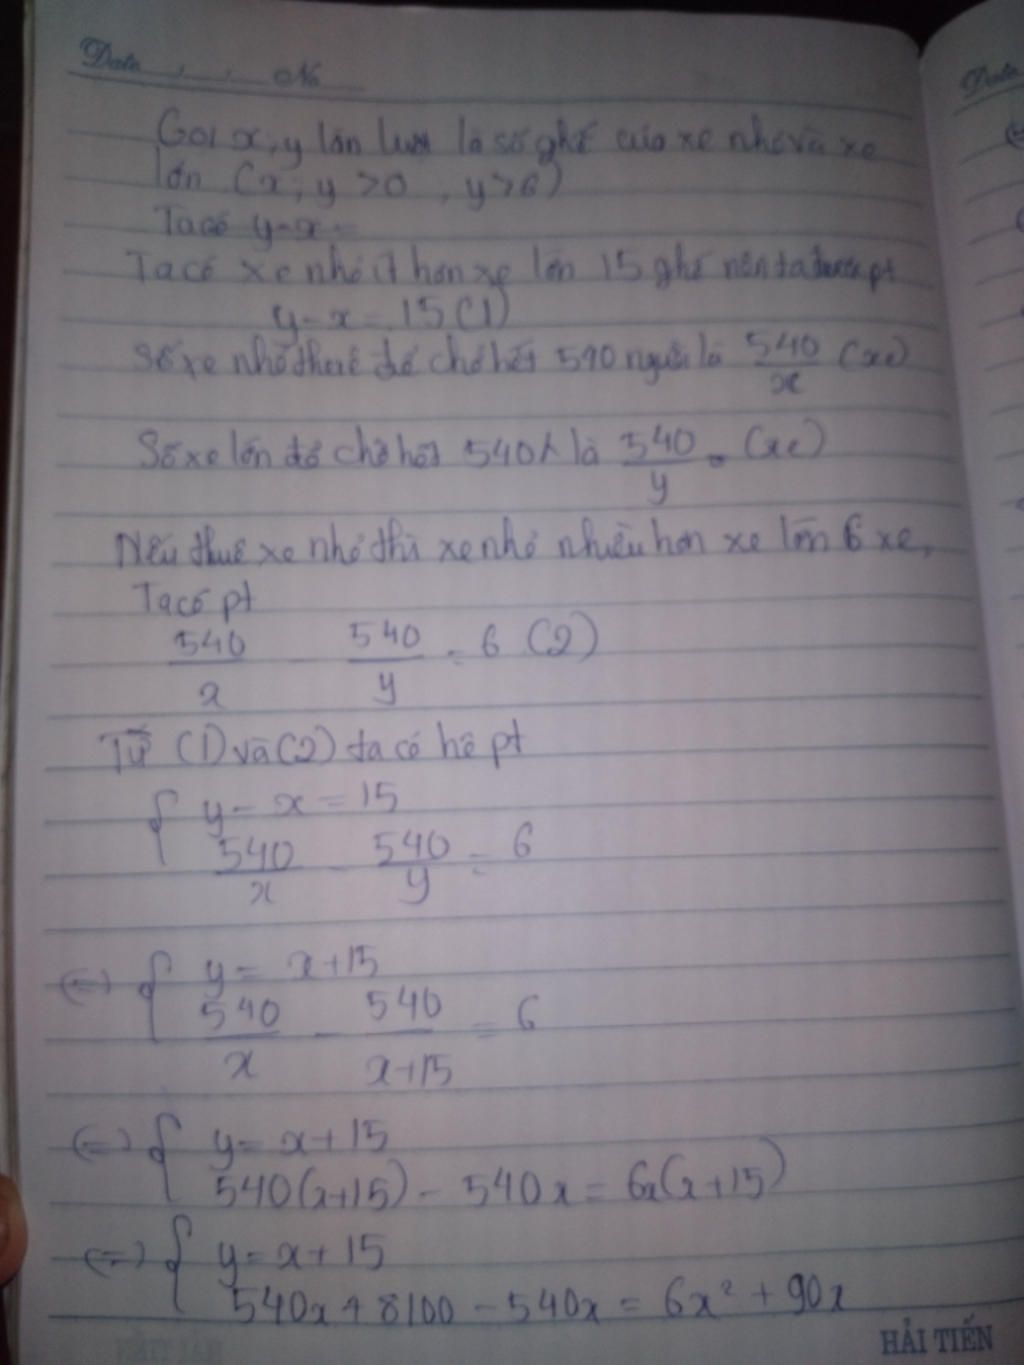 Date , , No
Gọi x, y lần lượt là số ghế của xe nhỏ và xe
lớn (x, y > 0 , y > 6)
Ta có y - x =
Ta có xe nhỏ ít hơn xe lớn 15 ghế nên ta được pt
y - x = 15 (1)
Số xe nhỏ thuê để chở hết 540 người là 540/x (xe)
Số xe lớn để chở hết 540 là 540/y (xe)
Nếu thuê xe nhỏ thì xe nhỏ nhiều hơn xe lớn 6 xe,
Ta có pt
540/x - 540/y = 6 (2)
Từ (1) và (2) ta có hệ pt
{ y - x = 15
540/x - 540/y = 6
<=> { y = x + 15
540/x - 540/x+15 = 6
<=> { y = x + 15
540(x+15) - 540x = 6x(x+15)
<=> { y = x + 15
540x + 8100 - 540x = 6x² + 90x
HẢI TIẾN